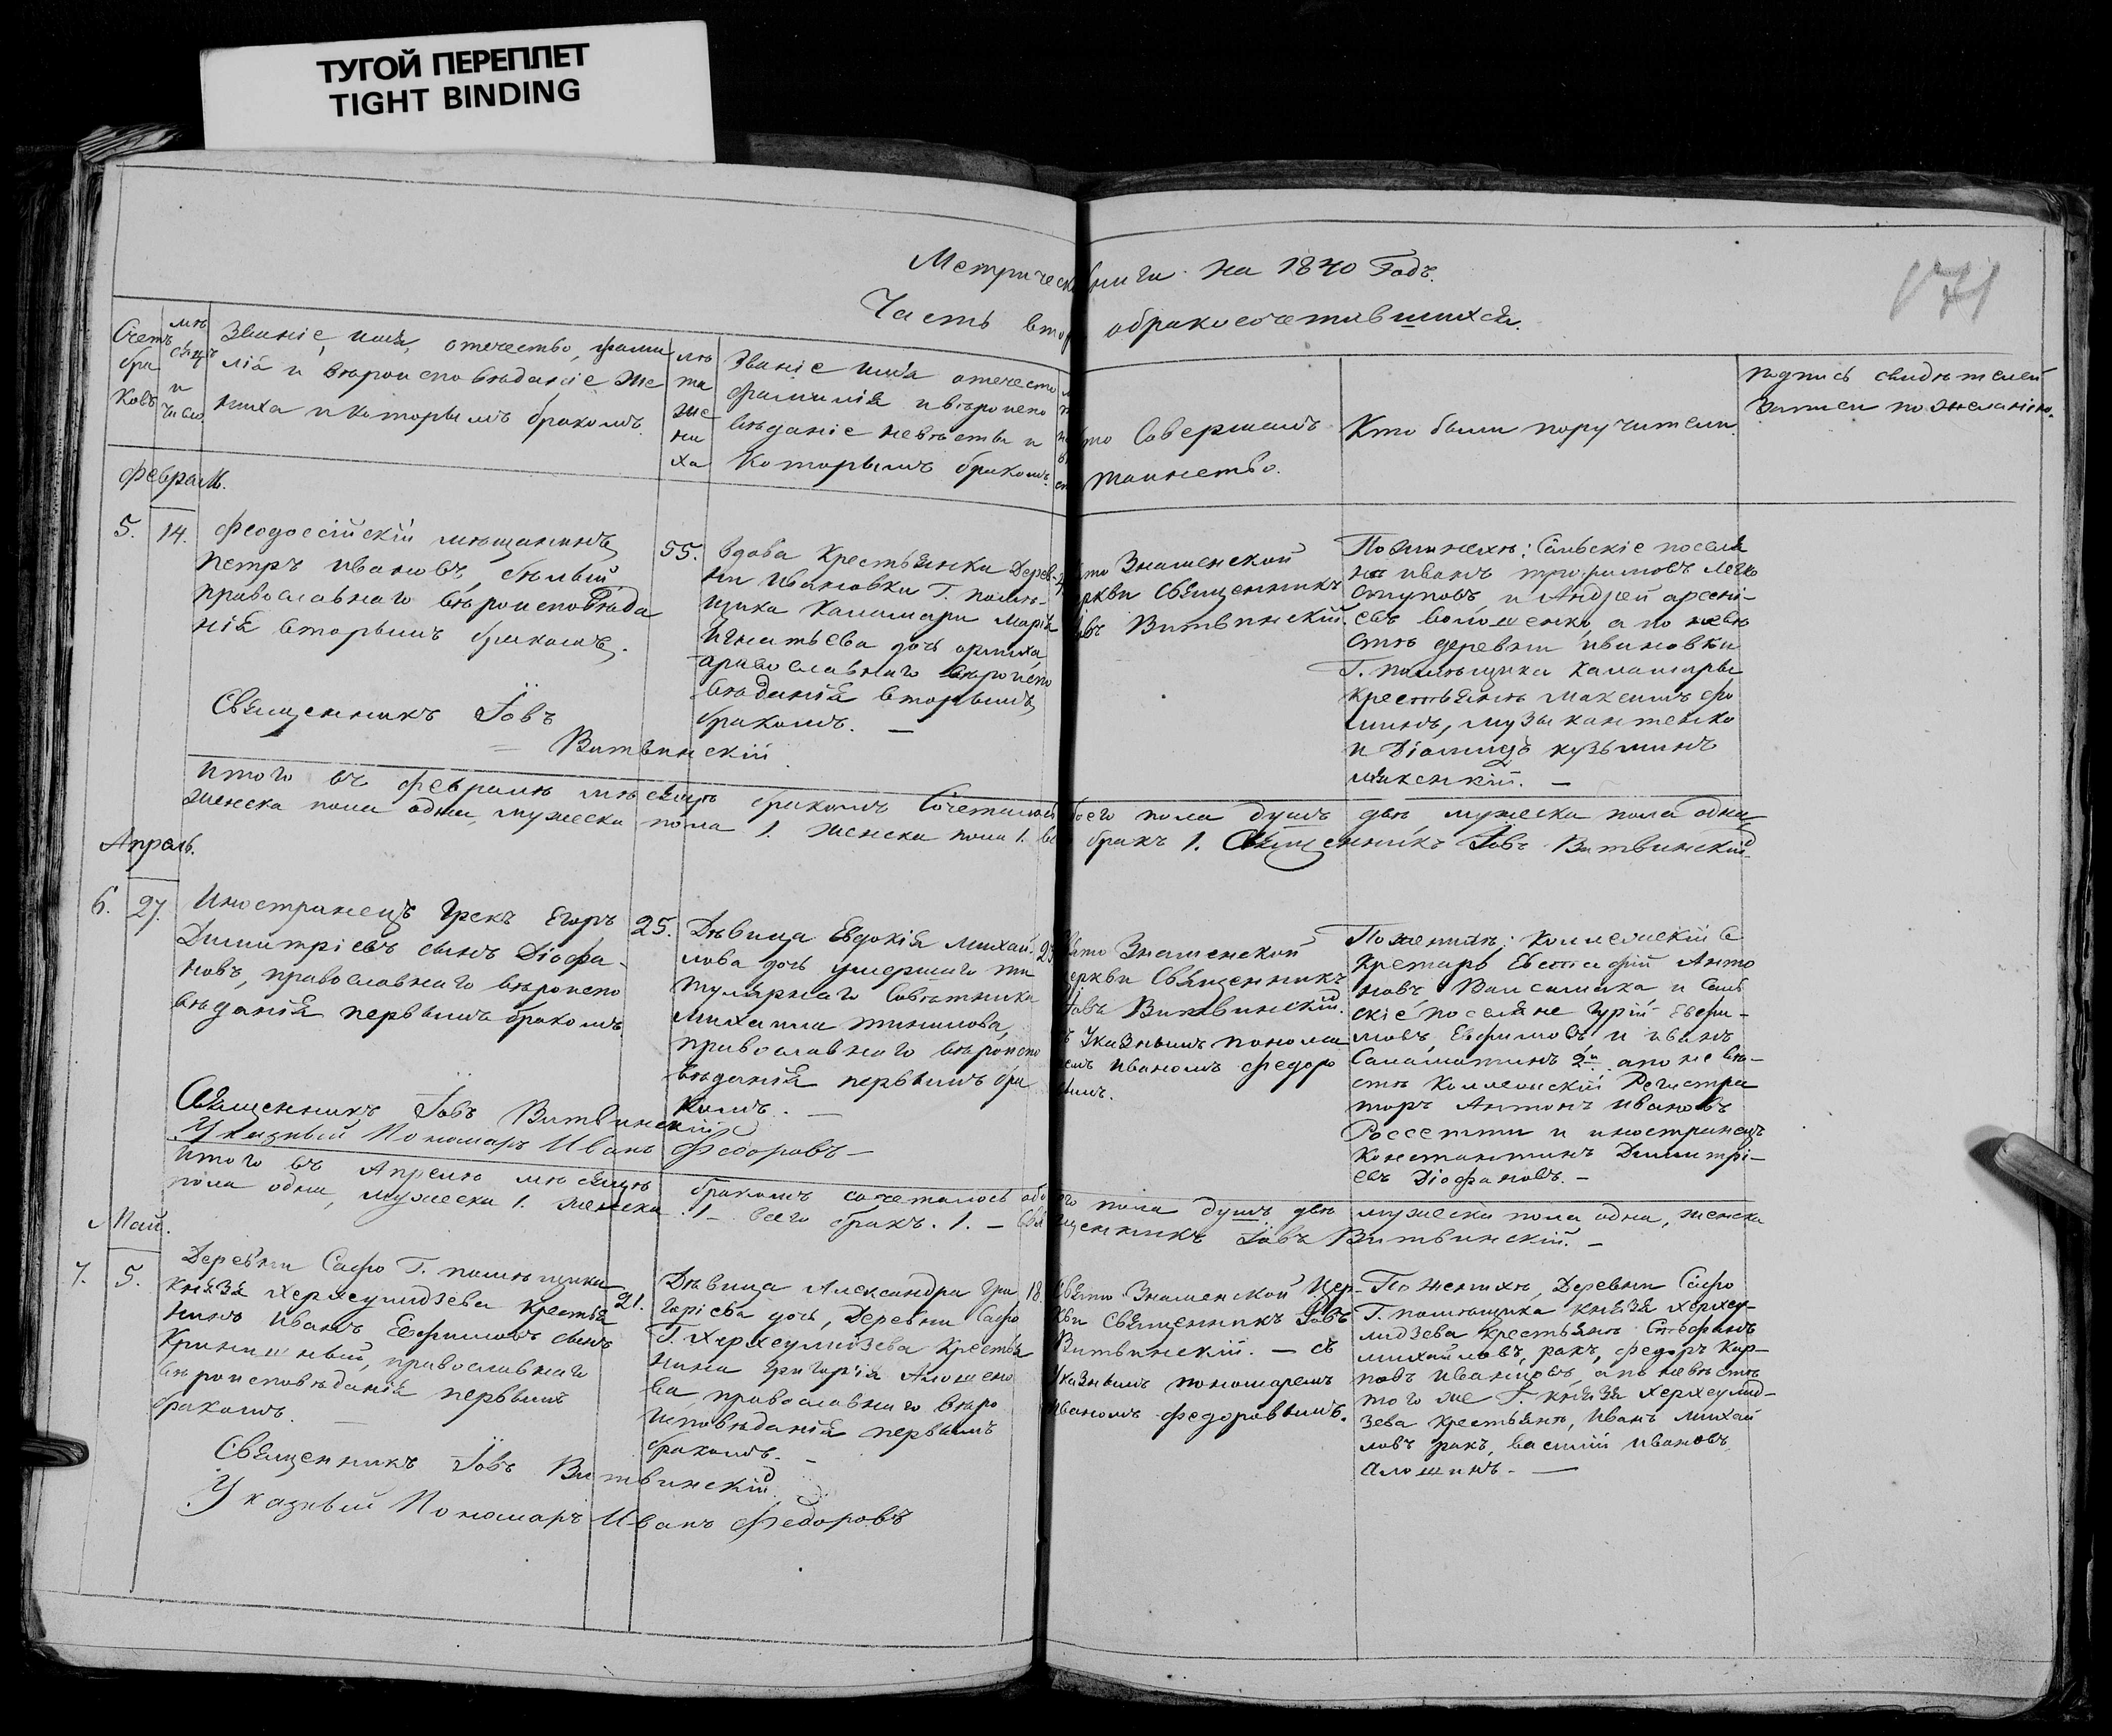 ТУГОЙ ПЕРЕПЛЕТ
TIGHT BINDING
Метрическ ниги на 1840 Годъ.
Часть втор обракосочетавшихся.
171
Счетъ браковъ
мѣсяцъ и число.
Званіе, имя, отечество, фами
лія и вѣроисповѣданіе же
ниха и которымъ бракомъ.
лѣ
та
же
ни
ха
Званіе имя отечество
фамилія и вѣроиспо
вѣданіе невѣсты и
которымъ бракомъ.
то Совершалъ
таинство.
Кто были поручители.
подпись свидѣтелей
записи по желанію.
Февраль.
5.
14.
Феодоссійскій мѣщанинъ
Петръ Ивановъ, бѣлый
православнаго вѣроисповѣда
нія вторымъ бракомъ.
Священникъ Іовъ
Витвинскій
55.
Вдова Крестьянка Дерев
ни Ивановки Г. помѣ-
щика Каламари Марія
Игнатьева дочь
православнаго вѣроиспо
вѣданія вторымъ
бракомъ. —
то Знаменской
ркви Священникъ
овъ Витвинскій.
По женихѣ: Сельскіе поселя
не Иванъ Трофимовъ Легко
ступовъ, и Андрей Арсені-
евъ Волошенко, а по невѣ
стѣ деревни Ивановки
Г. помѣщика Каламары
крестьяне Максимъ Фо
минъ, Музыкантенко
и Діомидъ Кузьминъ
. —
Итого въ Февралѣ мѣсяцѣ бракомъ Сочеталось боего пола душъ двѣ мужеска пола одна
женска пола одна, мужеска пола 1. женска пола 1. вс бракъ 1. Священникъ Іовъ Витвинскій
Апрель.
6.
27.
Иностранецъ Грекъ Егоръ
Димитріевъ сынъ Діофа-
новъ, православнаго вѣроиспо
вѣданія первымъ бракомъ
Священникъ Іовъ Витвинскій
Указный Пономарь Иванъ Федоровъ —
25.
Дѣвица Евдокія Михай-
лова дочь умершаго ти
тулярнаго Совѣтника
Михаила
православнаго вѣроиспо
вѣданія первымъ бра
комъ. —
ято Знаменской
еркви Священникъ
Іовъ Витвинскій.
ъ Указнымъ понома
емъ Иваномъ Федоро
вымъ.
По женихѣ: Коллежскій Се
кретарь Евстафій Анто
новъ Валсамака и Сель
скіе поселяне Гурій Ефи-
мовъ, Ефимовъ и Иванъ
Саламатинъ 2й а по невѣ-
стѣ Коллежскій Регистра
торъ Антонъ Ивановъ
Россетти и иностранецъ
Константинъ Димитрі-
евъ Діофановъ. —
Итого въ Апрелѣ мѣсяцѣ бракомъ сочеталось обо его пола душъ двѣ мужеска пола одна, женска
пола одна, мужеска 1. женска 1 — всего бракъ 1. — Свя щенникъ Іовъ Витвинскій. —
Май.
7.
5.
Деревни Сафо Г. помѣщика
Князя Херхеулидзева крестья
нинъ Иванъ Ефимовъ сынъ
Криничный, православнаго
вѣроисповѣданія первымъ
бракомъ. —
Священникъ Іовъ Витвинскій
Указный Пономарь Иванъ Федоровъ
21.
Дѣвица Александра Гри
горіева дочь, Деревни Сафо
Г. Херхеулидзева Крестья
нина Григорія Алошено
ва, православнаго вѣро
исповѣданія первымъ
бракомъ. —
18.
Свято Знаменской Цер-
кви Священникъ Іовъ
Витвинскій. — съ
Указнымъ пономаремъ
Иваномъ Федоровымъ.
По женихѣ, Деревни Сафо
Г. помѣщика князя Херхеу-
лидзева крестьяне Стефанъ
Михайловъ, ракъ, Федоръ Кар-
повъ Ивановъ, а по невѣстѣ
того же Г. князя Херхеулид-
зева крестьяне, Иванъ Михай
ловъ ракъ, Василій Ивановъ
Алошинъ. —